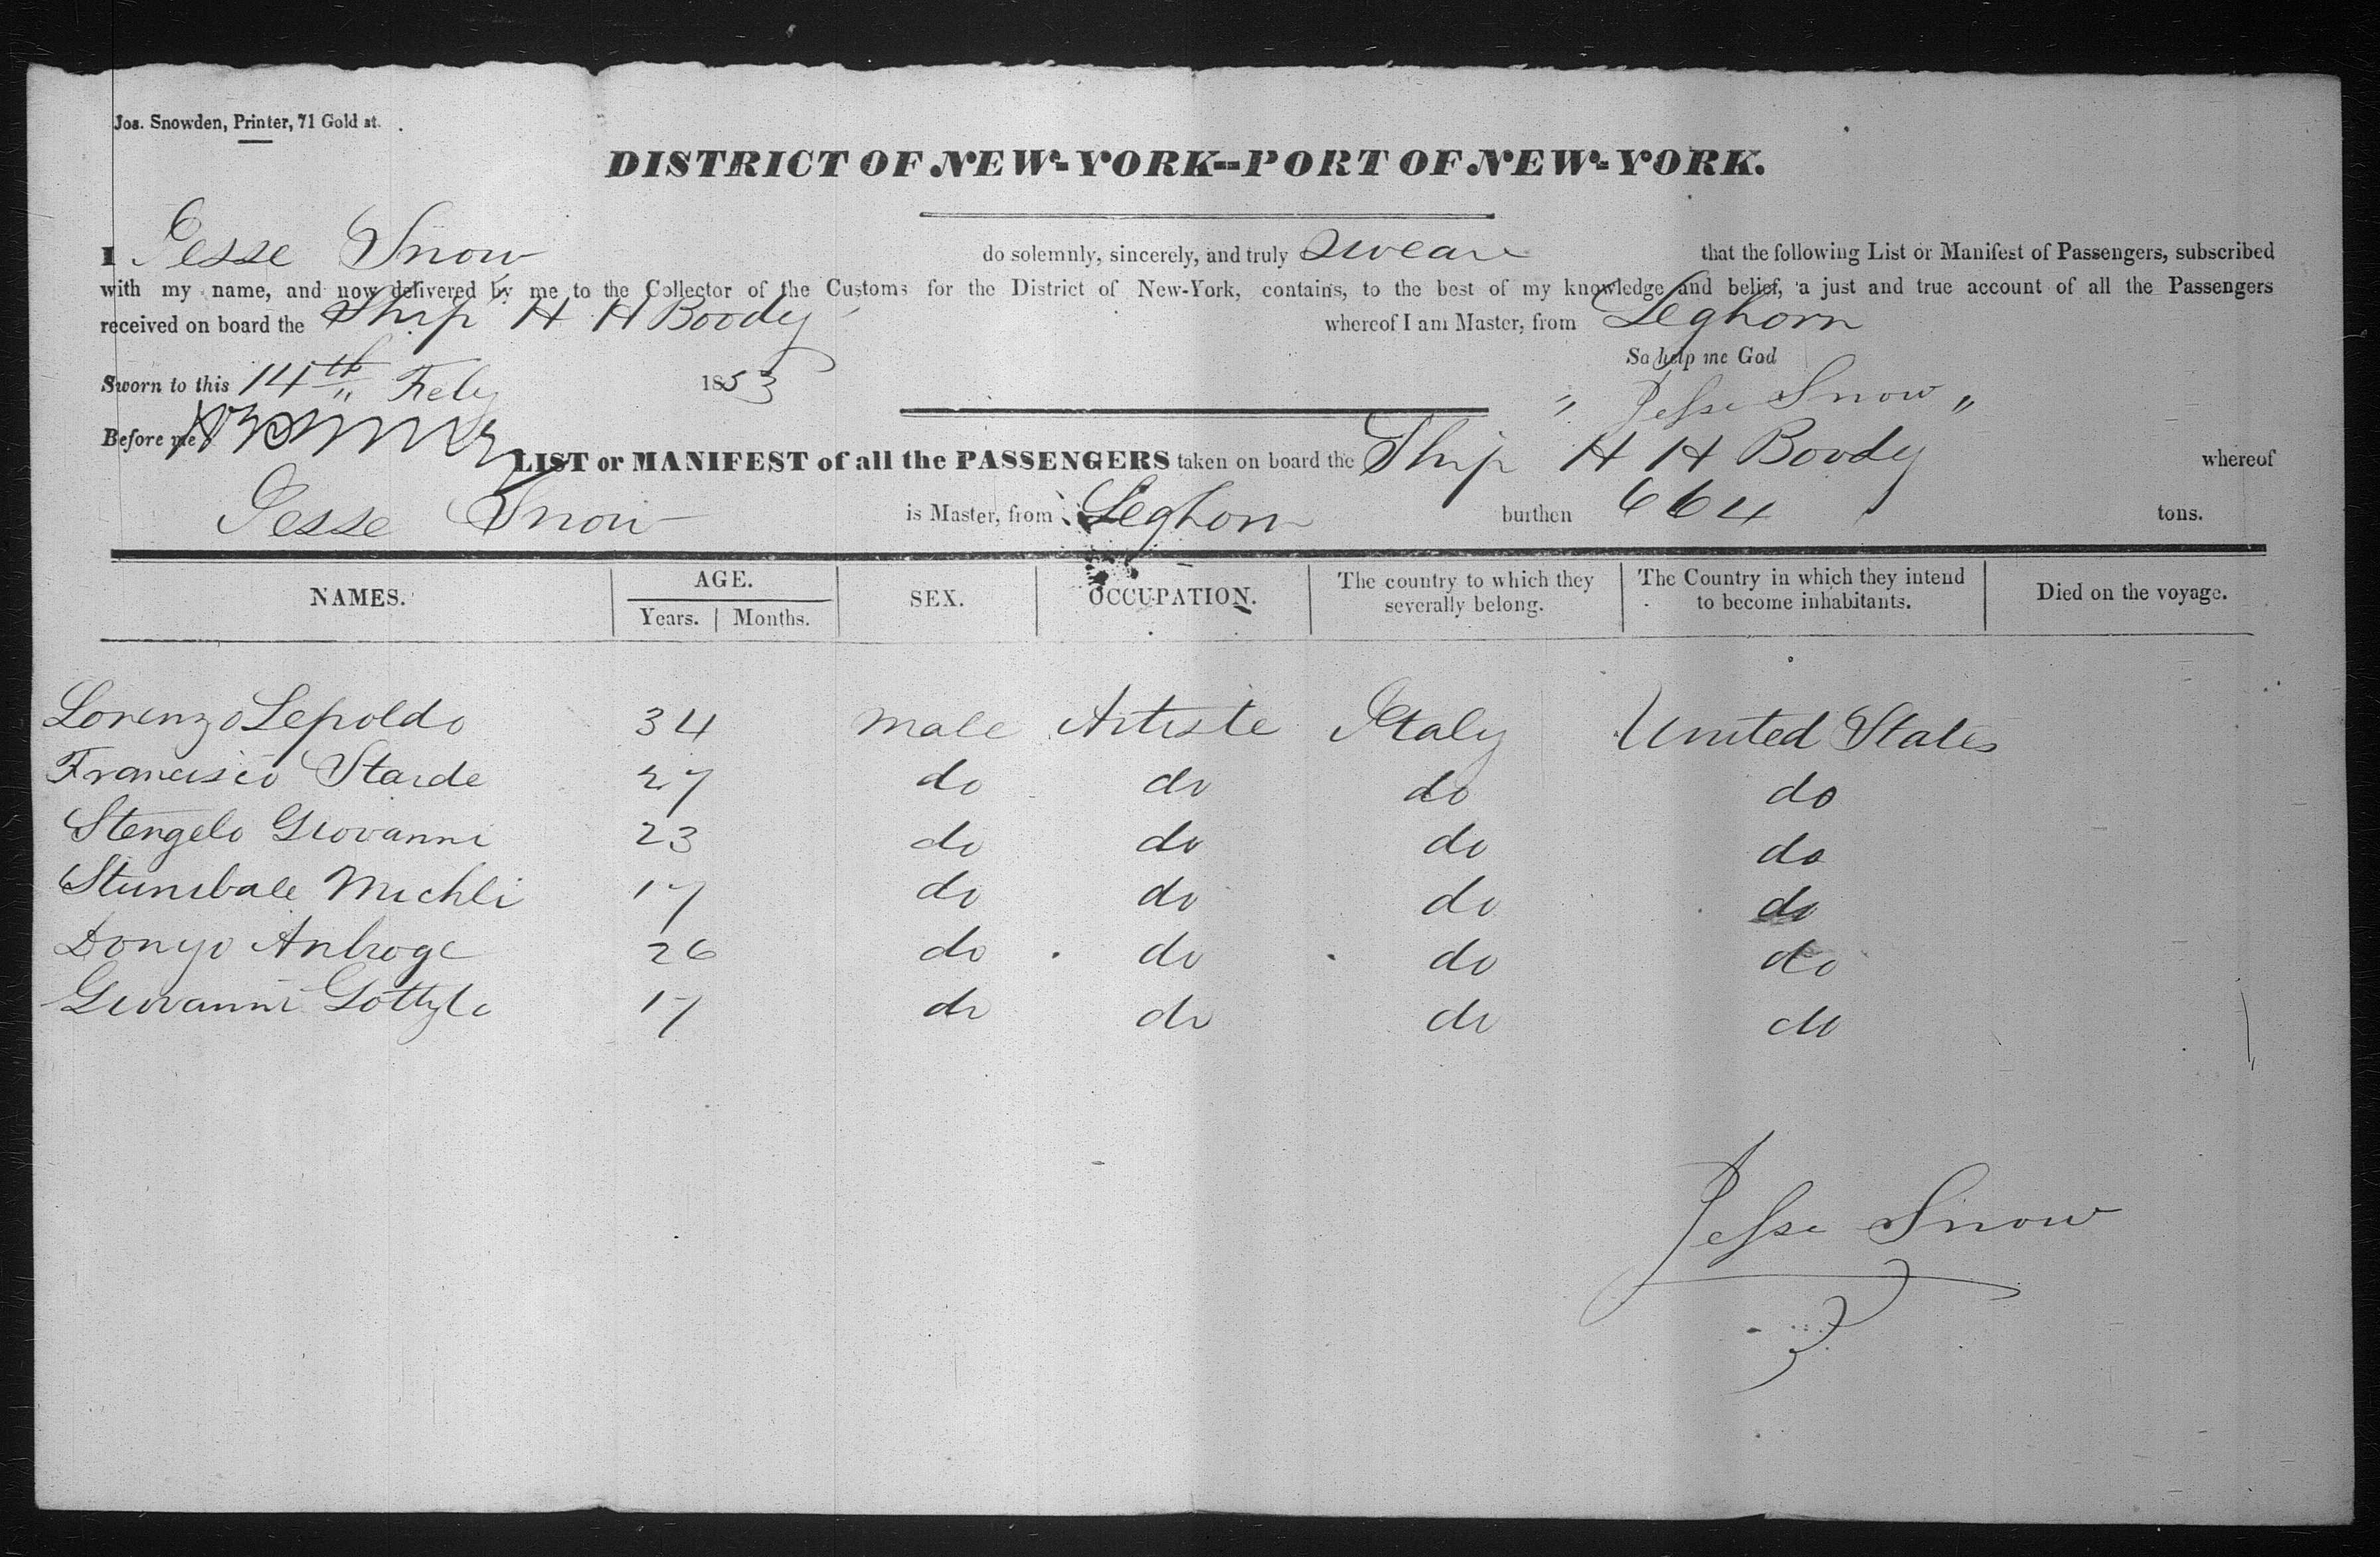 Jos. Snowden, Printer, 71 Gold st.
DISTRICT OF NEW-YORK--PORT OF NEW-YORK.
I Jesse Snow do solemnly, sincerely, and truly swear that the following List or Manifest of Passengers, subscribed
with my name, and now delivered by me to the Collector of the Customs for the District of New-York, contains, to the best of my knowledge and belief, a just and true account of all the Passengers
received on board the Ship H H Boody whereof I am Master, from Leghorn
So help me God
Sworn to this 14th Feby 1853 " Jesse Snow "
Before me
LIST or MANIFEST of all the PASSENGERS taken on board the Ship H H Boody whereof
Jesse Snow is Master, from Leghorn burthen 664 tons.
NAMES. AGE. Years. Months. SEX. OCCUPATION. The country to which they severally belong. The Country in which they intend to become inhabitants. Died on the voyage.
Lorenzo Lepoldo 34 Male Artiste Italy United States
Francisco Starde 27 do do do do
Stengelo Giovanni 23 do do do do
Michli 17 do do do do
Donyo Anbroge 26 do do do do
Giovanni Gottyle 17 do do do do
Jesse Snow